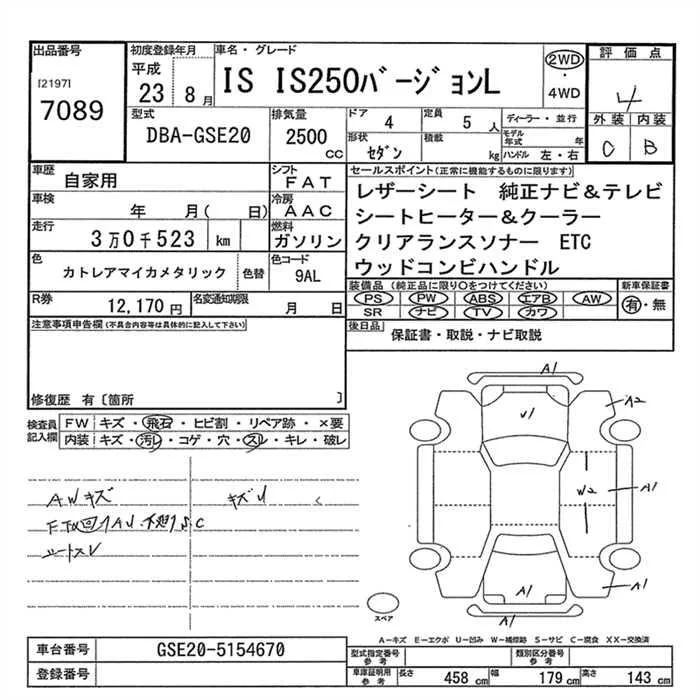 出品番号
[2197]
7089
初度登録年月
平成
23 8月
車名・グレード
IS IS250バージョンL
2WD
・
4WD
評価点
4
外装 内装
C B
型式
DBA-GSE20
排気量
2500
CC
ドア
4
定員
5人
形状
セダン
積載
kg
ディーラー・並行
モデル年式 年
ハンドル 左・右
車歴
自家用
シフト
FAT
車検
年 月( 日)
冷房
AAC
走行
3万0千523 km
燃料
ガソリン
色
カトレアマイカメタリック
色替
色コード
9AL
R券
12,170円
名変通知期限
月 日
セールスポイント(正常に機能するものに限ります)
レザーシート 純正ナビ&テレビ
シートヒーター&クーラー
クリアランスソナー ETC
ウッドコンビハンドル
装備品(純正品に限り○をつけてください)
PS PW ABS エアB AW
SR ナビ TV カワ
新車保証書
有・無
後日品
保証書・取説・ナビ取説
注意事項申告欄(不具合内容等は具体的に記入して下さい)
修復歴 有〔箇所 〕
検査員
記入欄
FW キズ・飛石・ヒビ割・リペア跡・×要
内装 キズ・汚レ・コゲ・穴・スレ・キレ・破レ
AWキズ
A1
A2
W2
A1
A1
A1
A1
スペア
A−キズ E−エクボ U−凹み W−補修跡 S−サビ C−腐食 XX−交換済
車台番号
GSE20-5154670
登録番号
型式指定番号
参考
類別区分番号
参考
車庫証明用
参考
長さ 458 cm
幅 179 cm
高さ 143 cm